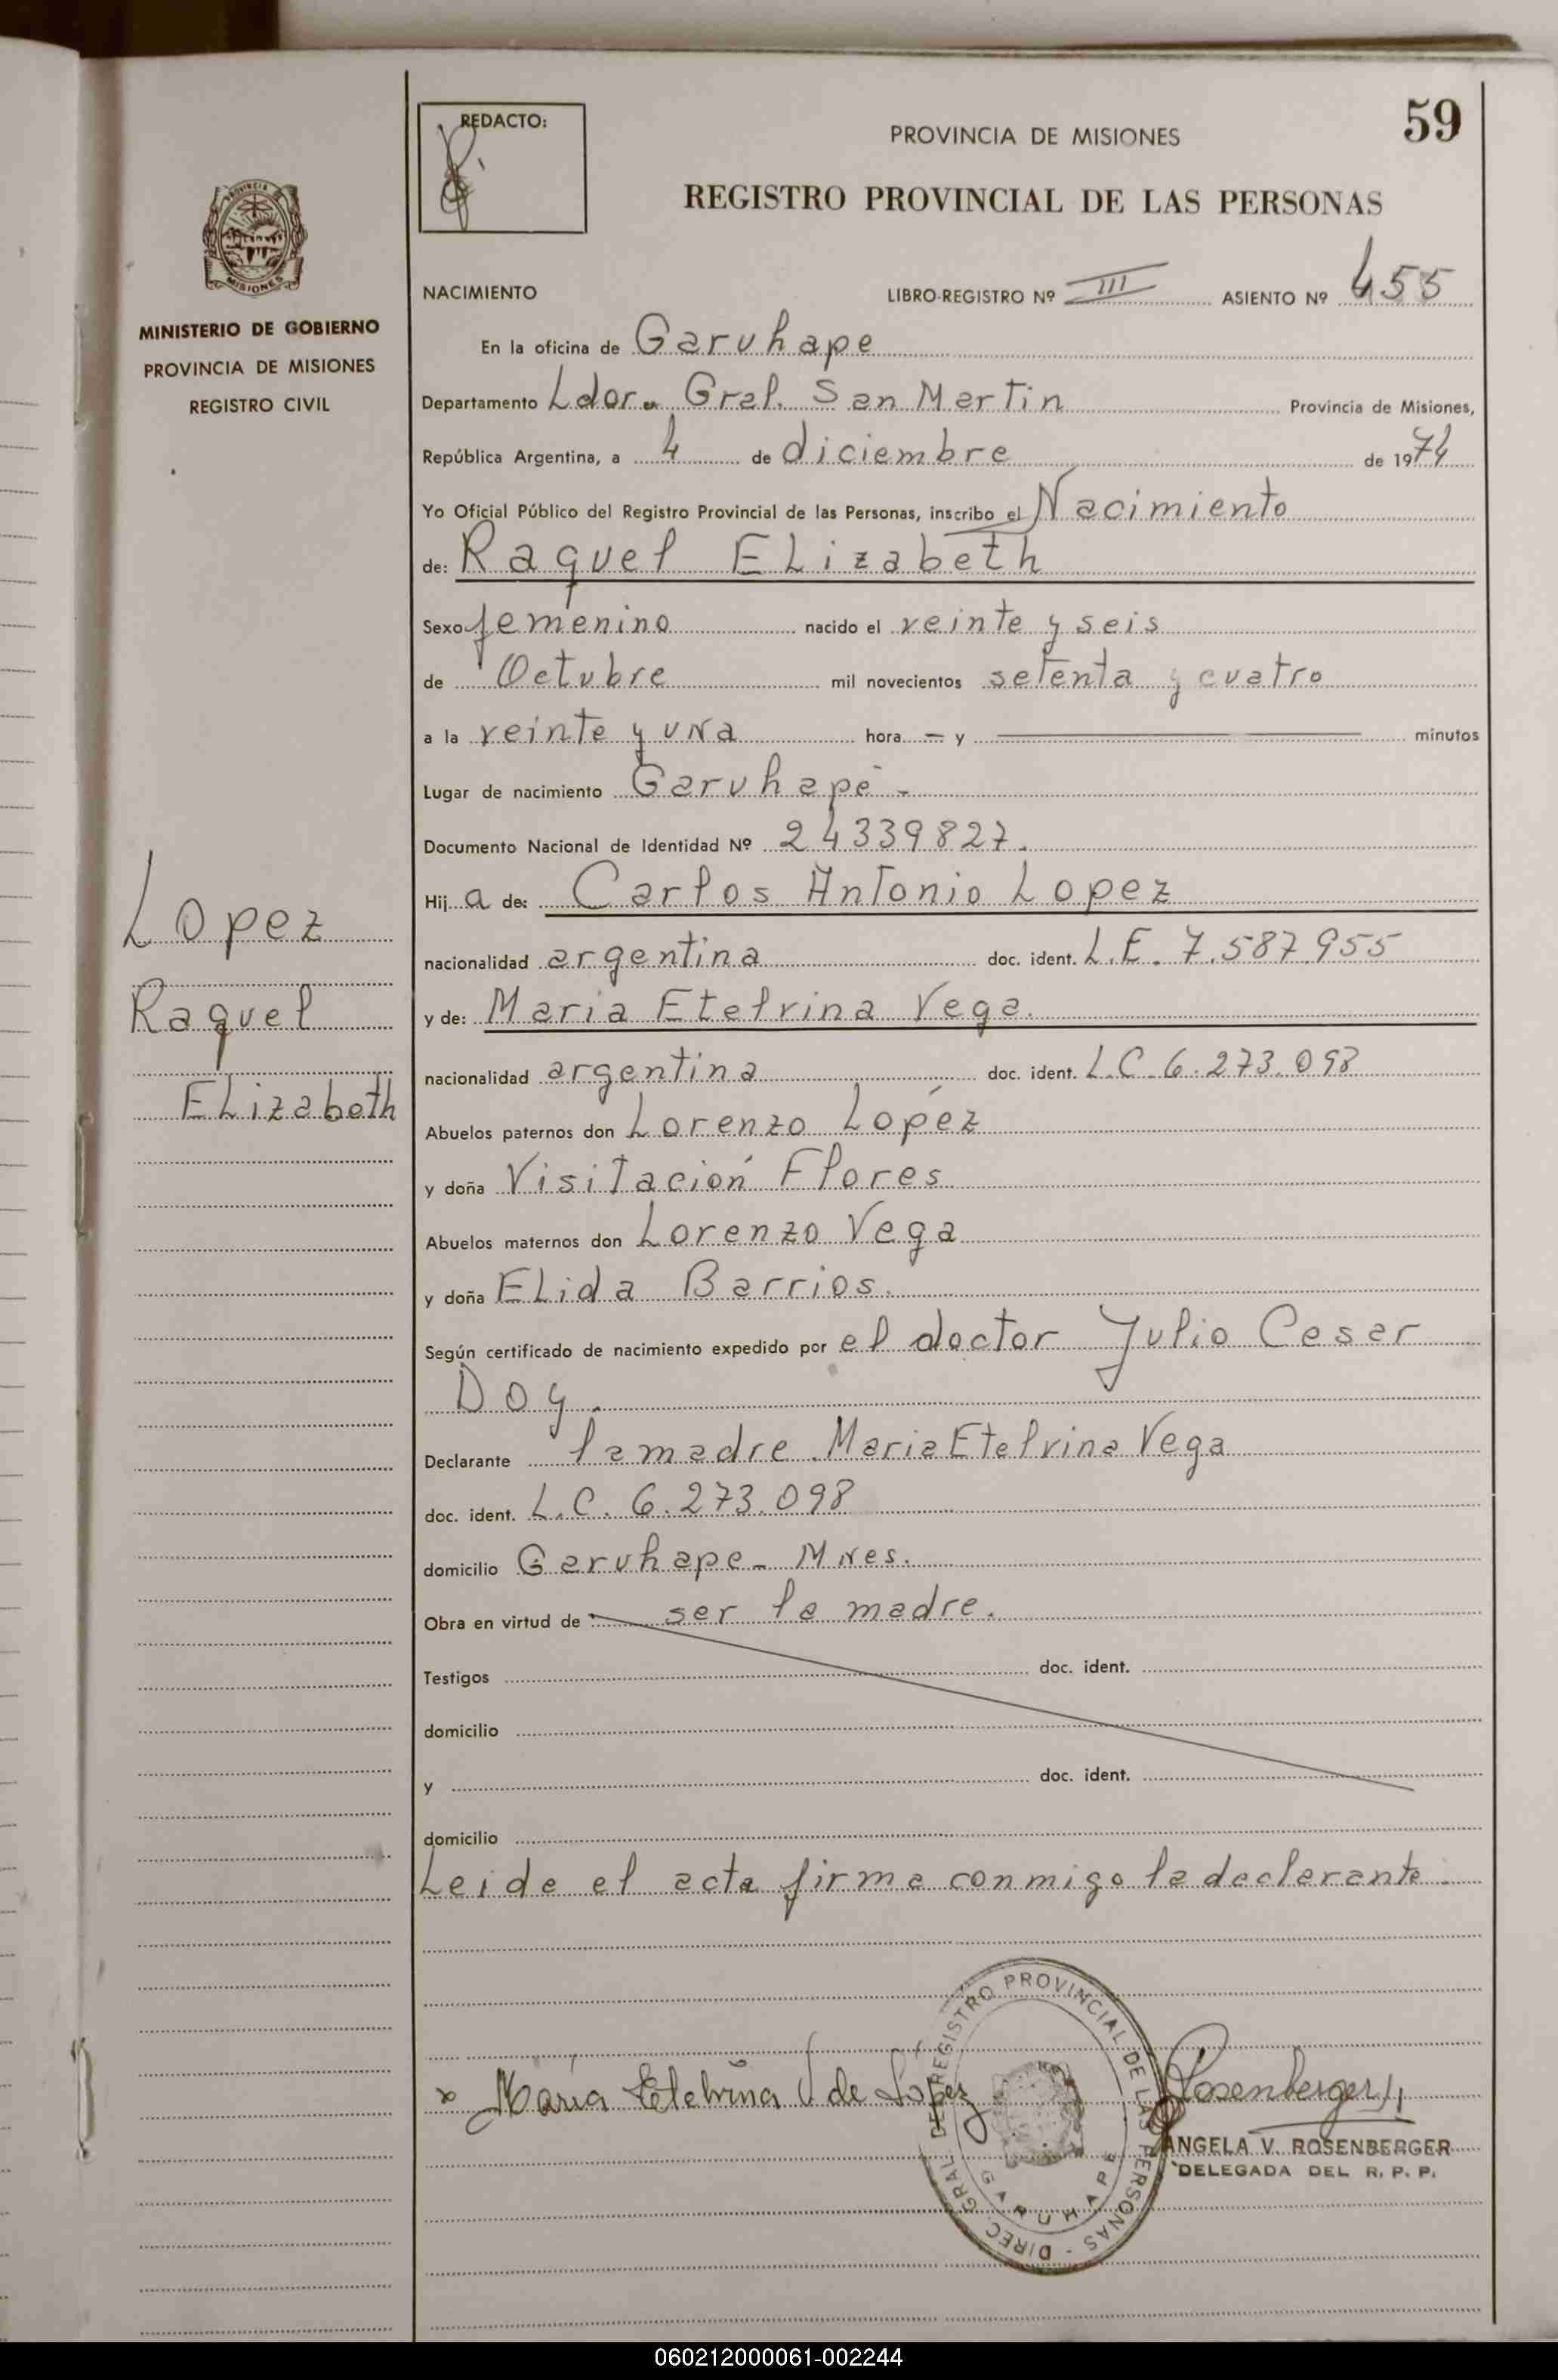 59
REDACTO:
PROVINCIA DE MISIONES
REGISTRO PROVINCIAL DE LAS PERSONAS
PROVINCIA DE
MISIONES
MINISTERIO DE GOBIERNO
PROVINCIA DE MISIONES
REGISTRO CIVIL
Lopez
Raquel
ELizabeth
NACIMIENTO LIBRO-REGISTRO Nº III ASIENTO Nº 455
En la oficina de Garuhape
Departamento Ldor. Gral. San Martin Provincia de Misiones,
República Argentina, a 4 de diciembre de 1974
Yo Oficial Público del Registro Provincial de las Personas, inscribo el Nacimiento
de: Raquel ELizabeth
Sexo femenino nacido el veinte y seis
de Octubre mil novecientos setenta y cuatro
a la veinte y una hora — y — minutos
Lugar de nacimiento Garuhapé -
Documento Nacional de Identidad Nº 24339827.
Hij a de: Carlos Antonio Lopez
nacionalidad argentina doc. ident. L.E. 7.587.955
y de: Maria Etelvina Vega.
nacionalidad argentina doc. ident. L.C. 6.273.098
Abuelos paternos don Lorenzo Lopéz
y doña Visitación Flores
Abuelos maternos don Lorenzo Vega
y doña ELida Barrios.
Según certificado de nacimiento expedido por el doctor Julio Cesar
Doy.
Declarante la madre Maria Etelvina Vega
doc. ident. L.C. 6.273.098
domicilio Garuhape - Mnes.
Obra en virtud de ser la madre.
Testigos doc. ident.
domicilio
y doc. ident.
domicilio
Leida el acta firma conmigo la declarante
x María Etelvina V de López
Rosenberger
DIREC. GRAL. DE REGISTRO PROVINCIAL DE LAS PERSONAS -
GARUHAPE
ANGELA V. ROSENBERGER
DELEGADA DEL R. P. P.
060212000061-002244